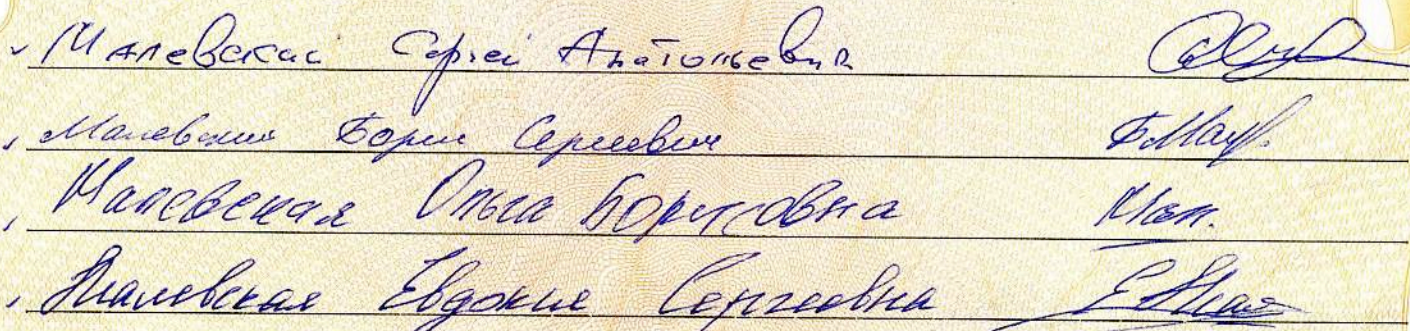 Малевский Сергей Анатольевич
Малевский Борис Сергеевич Б.Мал.
Малевская Ольга Борисовна Мал.
Малевская Евдокия Сергеевна Е.Мал